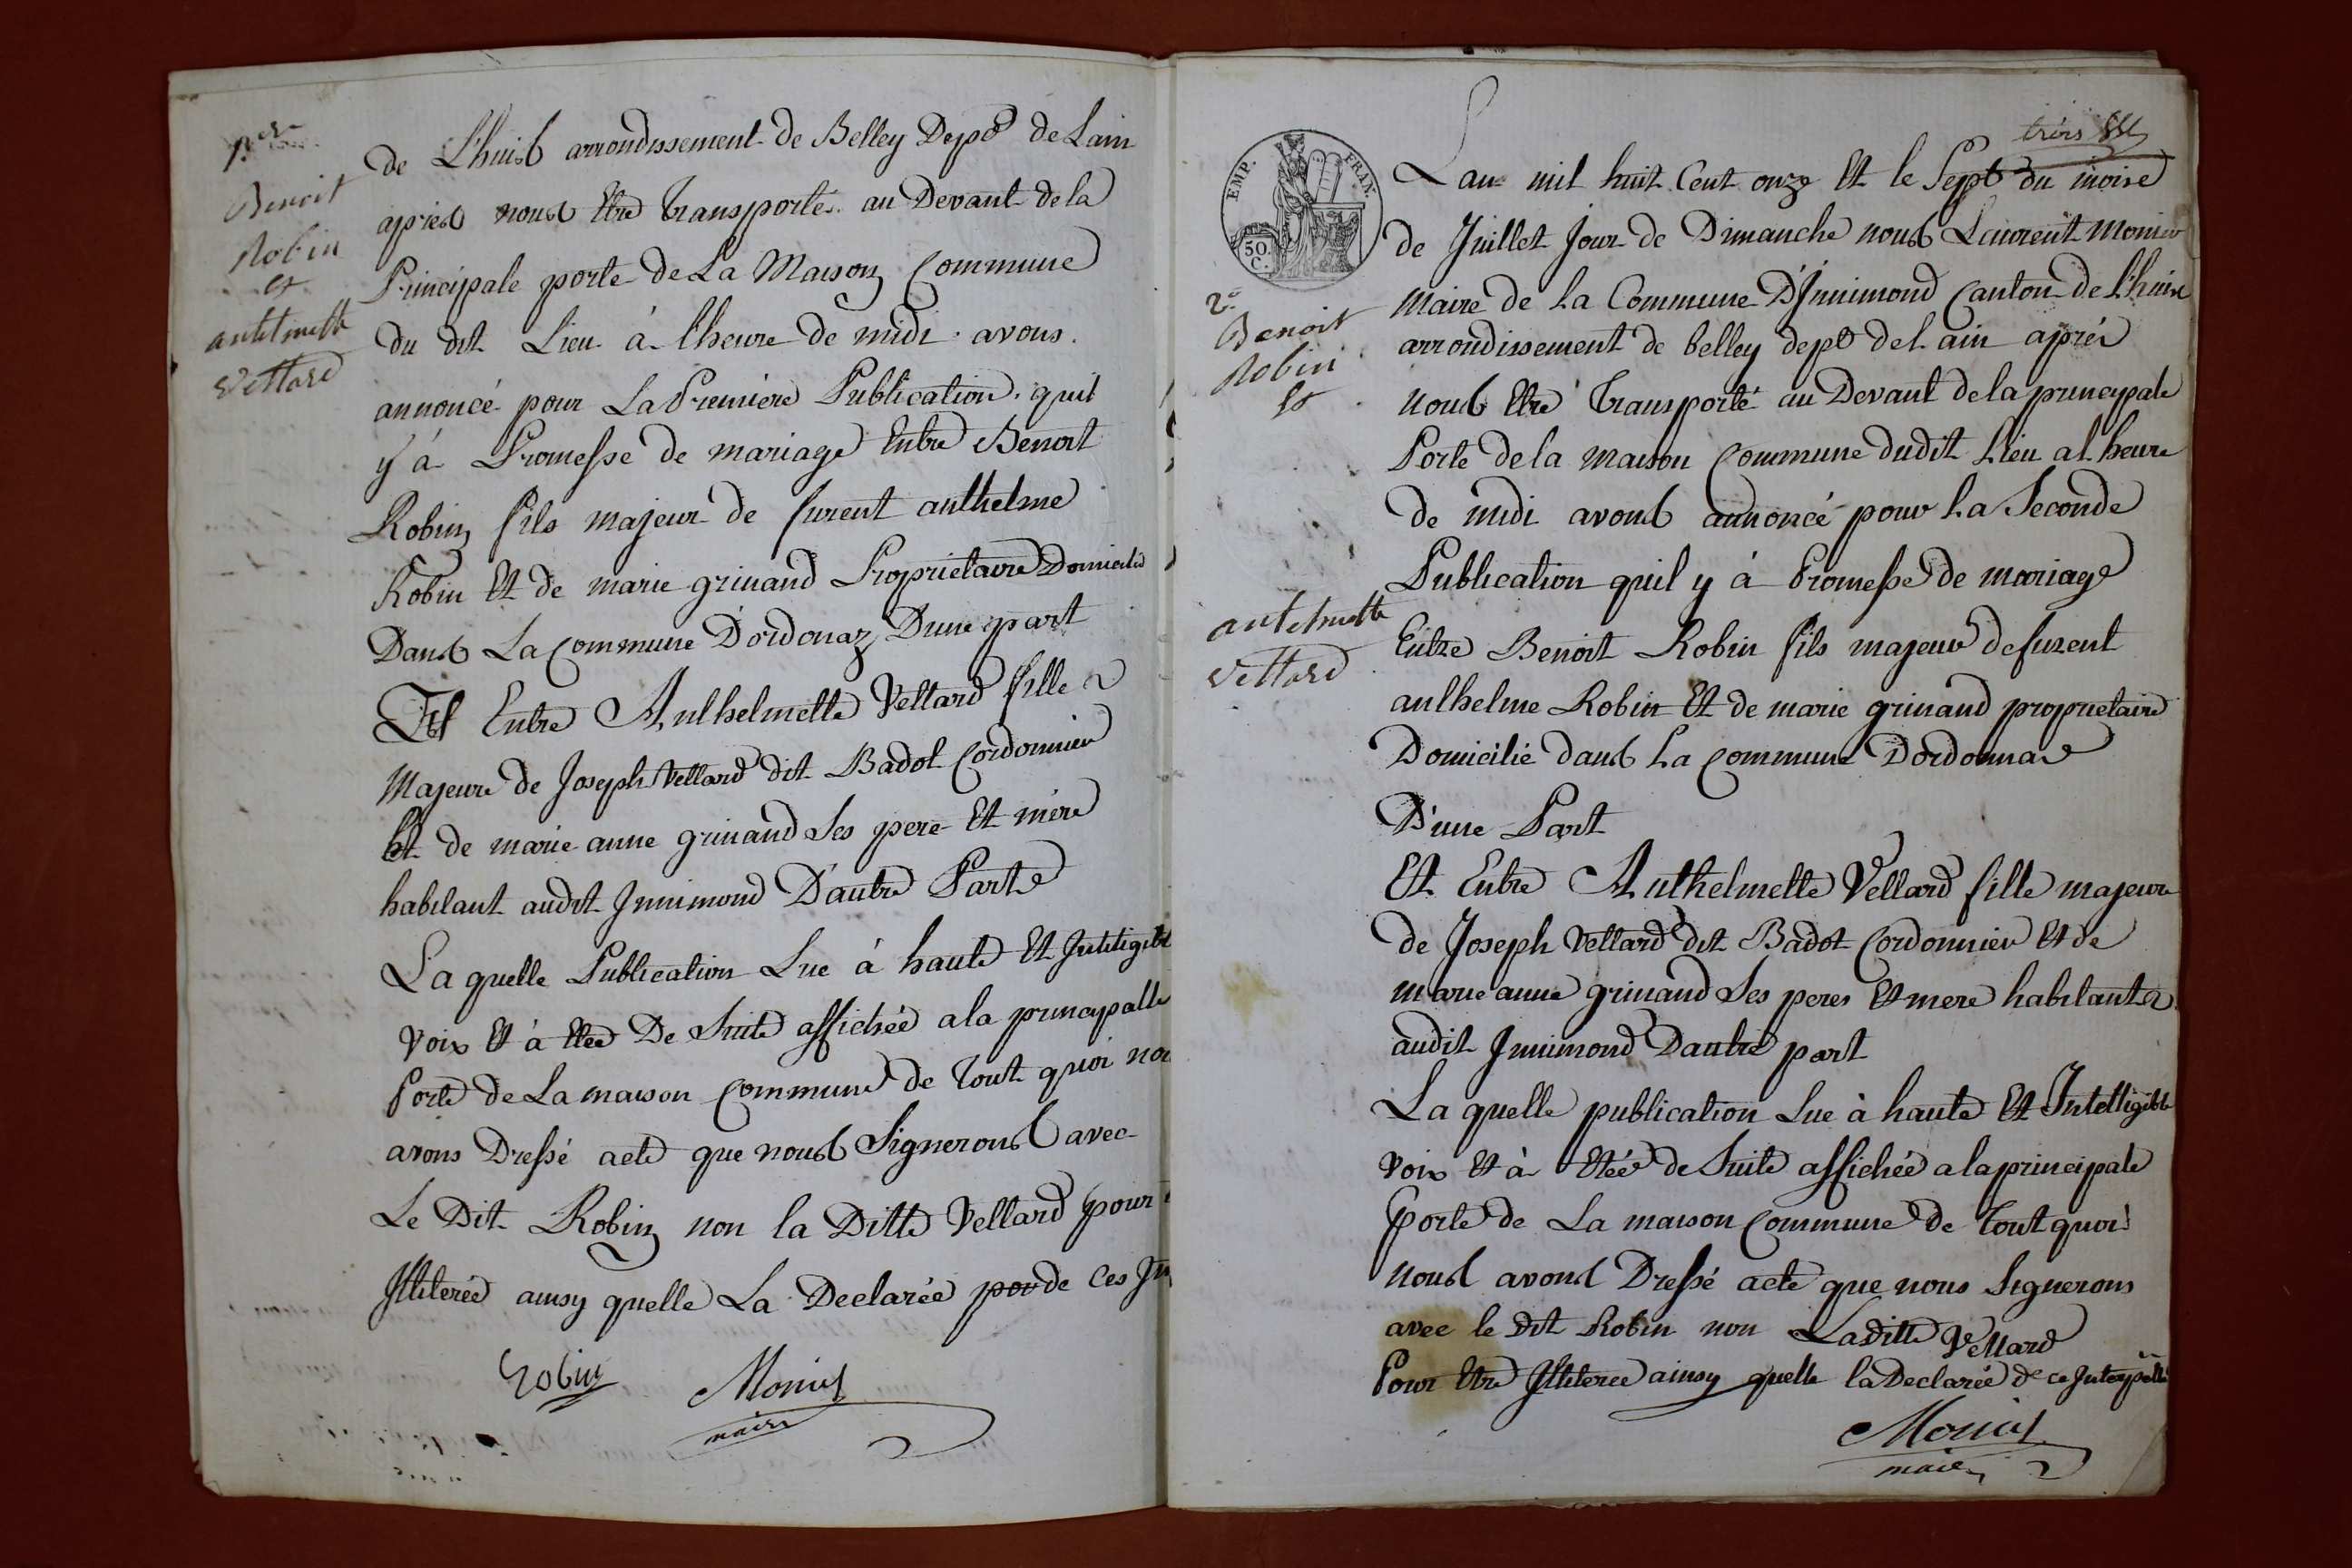 1ere
Benoit
Robin
et
antelmette
Vettard
de Lhuis arrondissement de Belley Dept de Lain
apries nous Etre Transportés au Devant de la
Principale porte de La Maison Commune
du dit Lieu à l'heure de midi avons
annoncé pour La Premiere Publication quil
y à Promesse de mariage Entre Benoit
Robin fils majeur de furent anthelme
Robin Et de marie grinand Proprietaire Domicilié
Dans La Commune D'ordonaz D'une part
Et Entre Anthelmette Vettard fille
Majeure de Joseph Vettard dit Badot Cordonnier
Et de marie anne grinand Ses pere Et mere
habitant audit Innimond D'autre Part
La quelle Publication Lue à haute Et Intiligibl
voix Et à Etée De Suite affichée a la principalle
Porte de La maison Commune de Tout quoi nou
avons Dressé acte que nous Signerons avec
Le Dit Robin non la Ditte Vettard pour
Illiterée ainsy quelle La Declarée pou de Ces In
Robin Monier
maire
trois
EMP. FRAN.
50.
C.
Lan mil huit Cent onze Et le Sept du moise
de Juillet Jour de Dimanche nous Laurent Monier
Maire de La Commune D'Innimond Canton de Lhuis
arrondissement de belley dept del ain aprés
nous Etre Transporté au Devant de la principale
Porte de la maison Commune dudit Lieu al heure
de midi avons annoncé pour La Seconde
Publication quil y à Promesse de mariage
2e
Benoit
Robin
Et
antelmette
Vettard
Entre Benoit Robin fils majeur de furent
anthelme Robin Et de marie grinand proprietaire
Domicilié dans La Commune Dordonnas
D'une Part
Et Entre Anthelmette Vettard fille majeure
de Joseph Vettard dit Badot Cordonnier Et de
marie anne grinand Ses peres Et mere habitants
audit Innimond Dautre part
La quelle publication Lue à haute Et Intelligible
voix Et à Etée de Suite affichée a la principale
Porte de La maison Commune de Tout quoi
nous avons Dressé acte que nous Signerons
avec le dit Robin non Laditte Vettard
Pour Etre Illiteree ainsy quelle la Declarée de ce Interpellé
Monier
maire